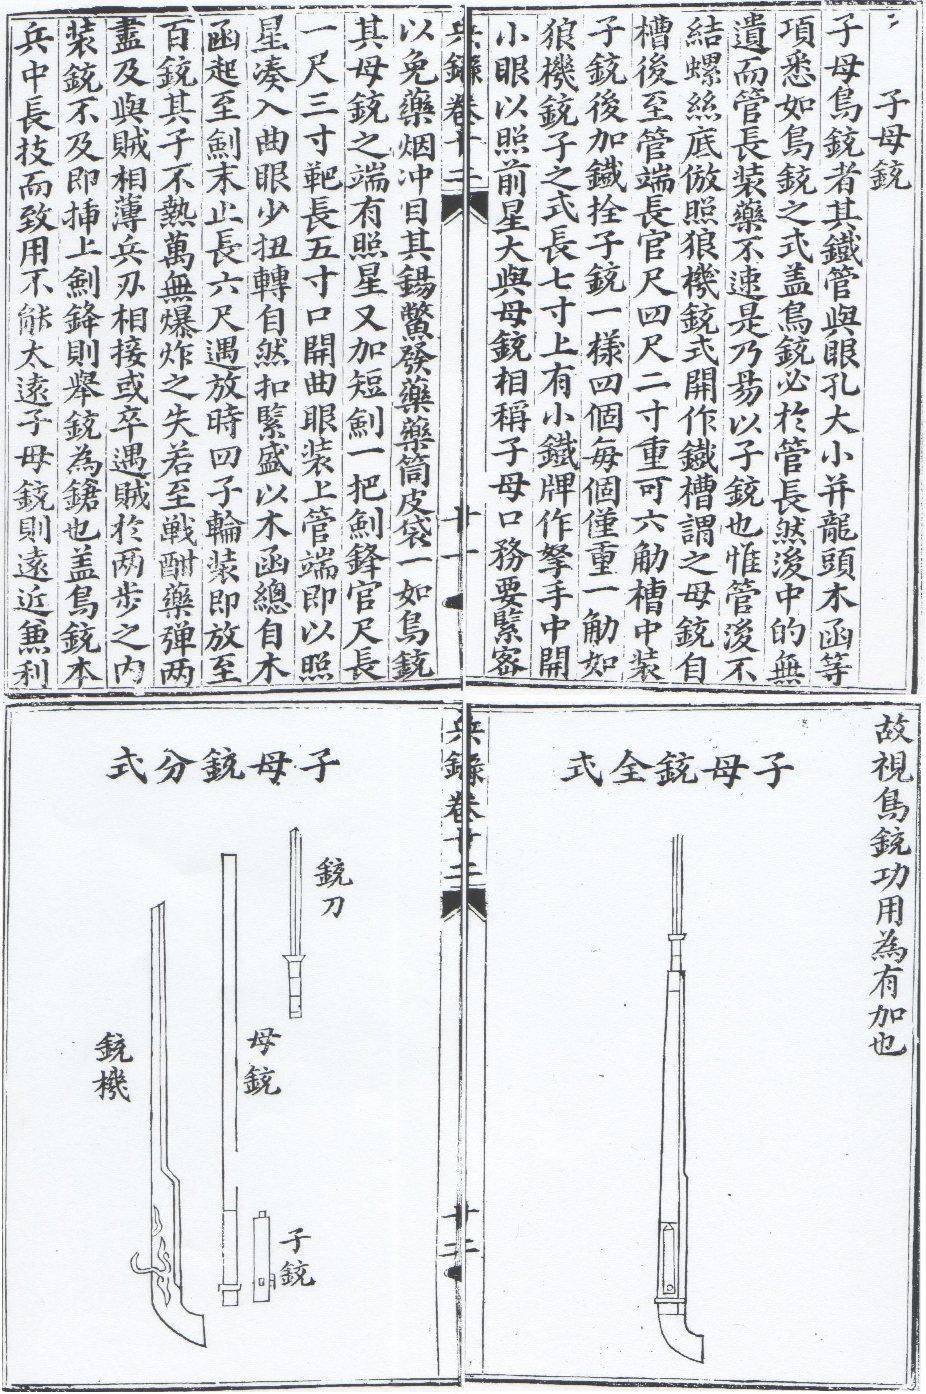 子母銃
子母鳥銃者其鐵管與眼孔大小并龍頭木函等
項悉如鳥銃之式盖鳥銃必扵管長然後中的無
遺而管長装藥不速是乃易以子銃也惟管後不
結螺絲底倣照狼機銃式開作鐵槽謂之母銃自
槽後至管端長官尺四尺二寸重可六觔槽中装
子銃後加鐵拴子銃一樣四個毎個僅重一觔如
狼機銃子之式長七寸上有小鐵牌作拏手中開
小眼以照前星大與母銃相稱子母口務要緊宻
兵錄卷十二
廿一
以免藥烟冲目其錫鱉發藥藥筒皮袋一如鳥銃
其母銃之端有照星又加短劍一把劍鋒官尺長
一尺三寸靶長五寸口開曲眼装上管端即以照
星凑入曲眼少扭轉自然扣緊盛以木函總自木
函起至劍末止長六尺遇放時四子輪装即放至
百銃其子不熱萬無爆炸之失若至戰酣藥弹两
盡及與賊相薄兵刃相接或卒遇賊扵两步之内
装銃不及即揷上劍鋒則舉銃為鎗也盖鳥銃本
兵中長技而致用不能太遠子母銃則遠近兼利
故視鳥銃功用為有加也
子母銃全式
兵錄卷十二
廿二
子母銃分式
銃刀
母銃
子銃
銃機